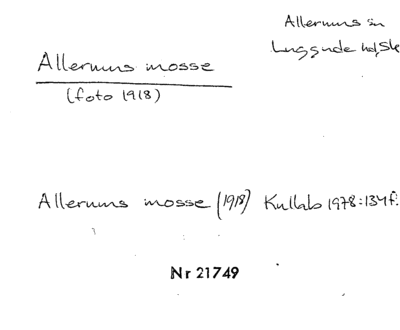 Allerums sn
Luggude hd, Sk
Allerums mosse
(foto 1918)
Allerums mosse (1918) Kullab 1978:134f.
Nr 21749